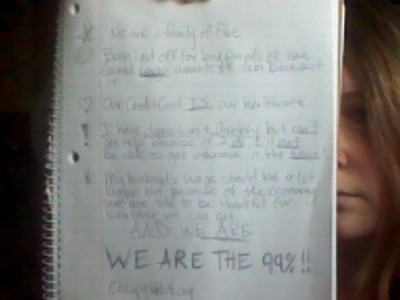 We are a family of five
Been laid off for long periods of time
and large amounts of debt because of
it
Our Credit Card IS our healthcare
I have depression & anxiety but can't
get help because if I do I'll not
be able to get insurance in the future!
My husband's wage should be a lot
larger but because of the economy
we are told to be thankful for
whatever we can get
AND WE ARE
WE ARE THE 99%!!